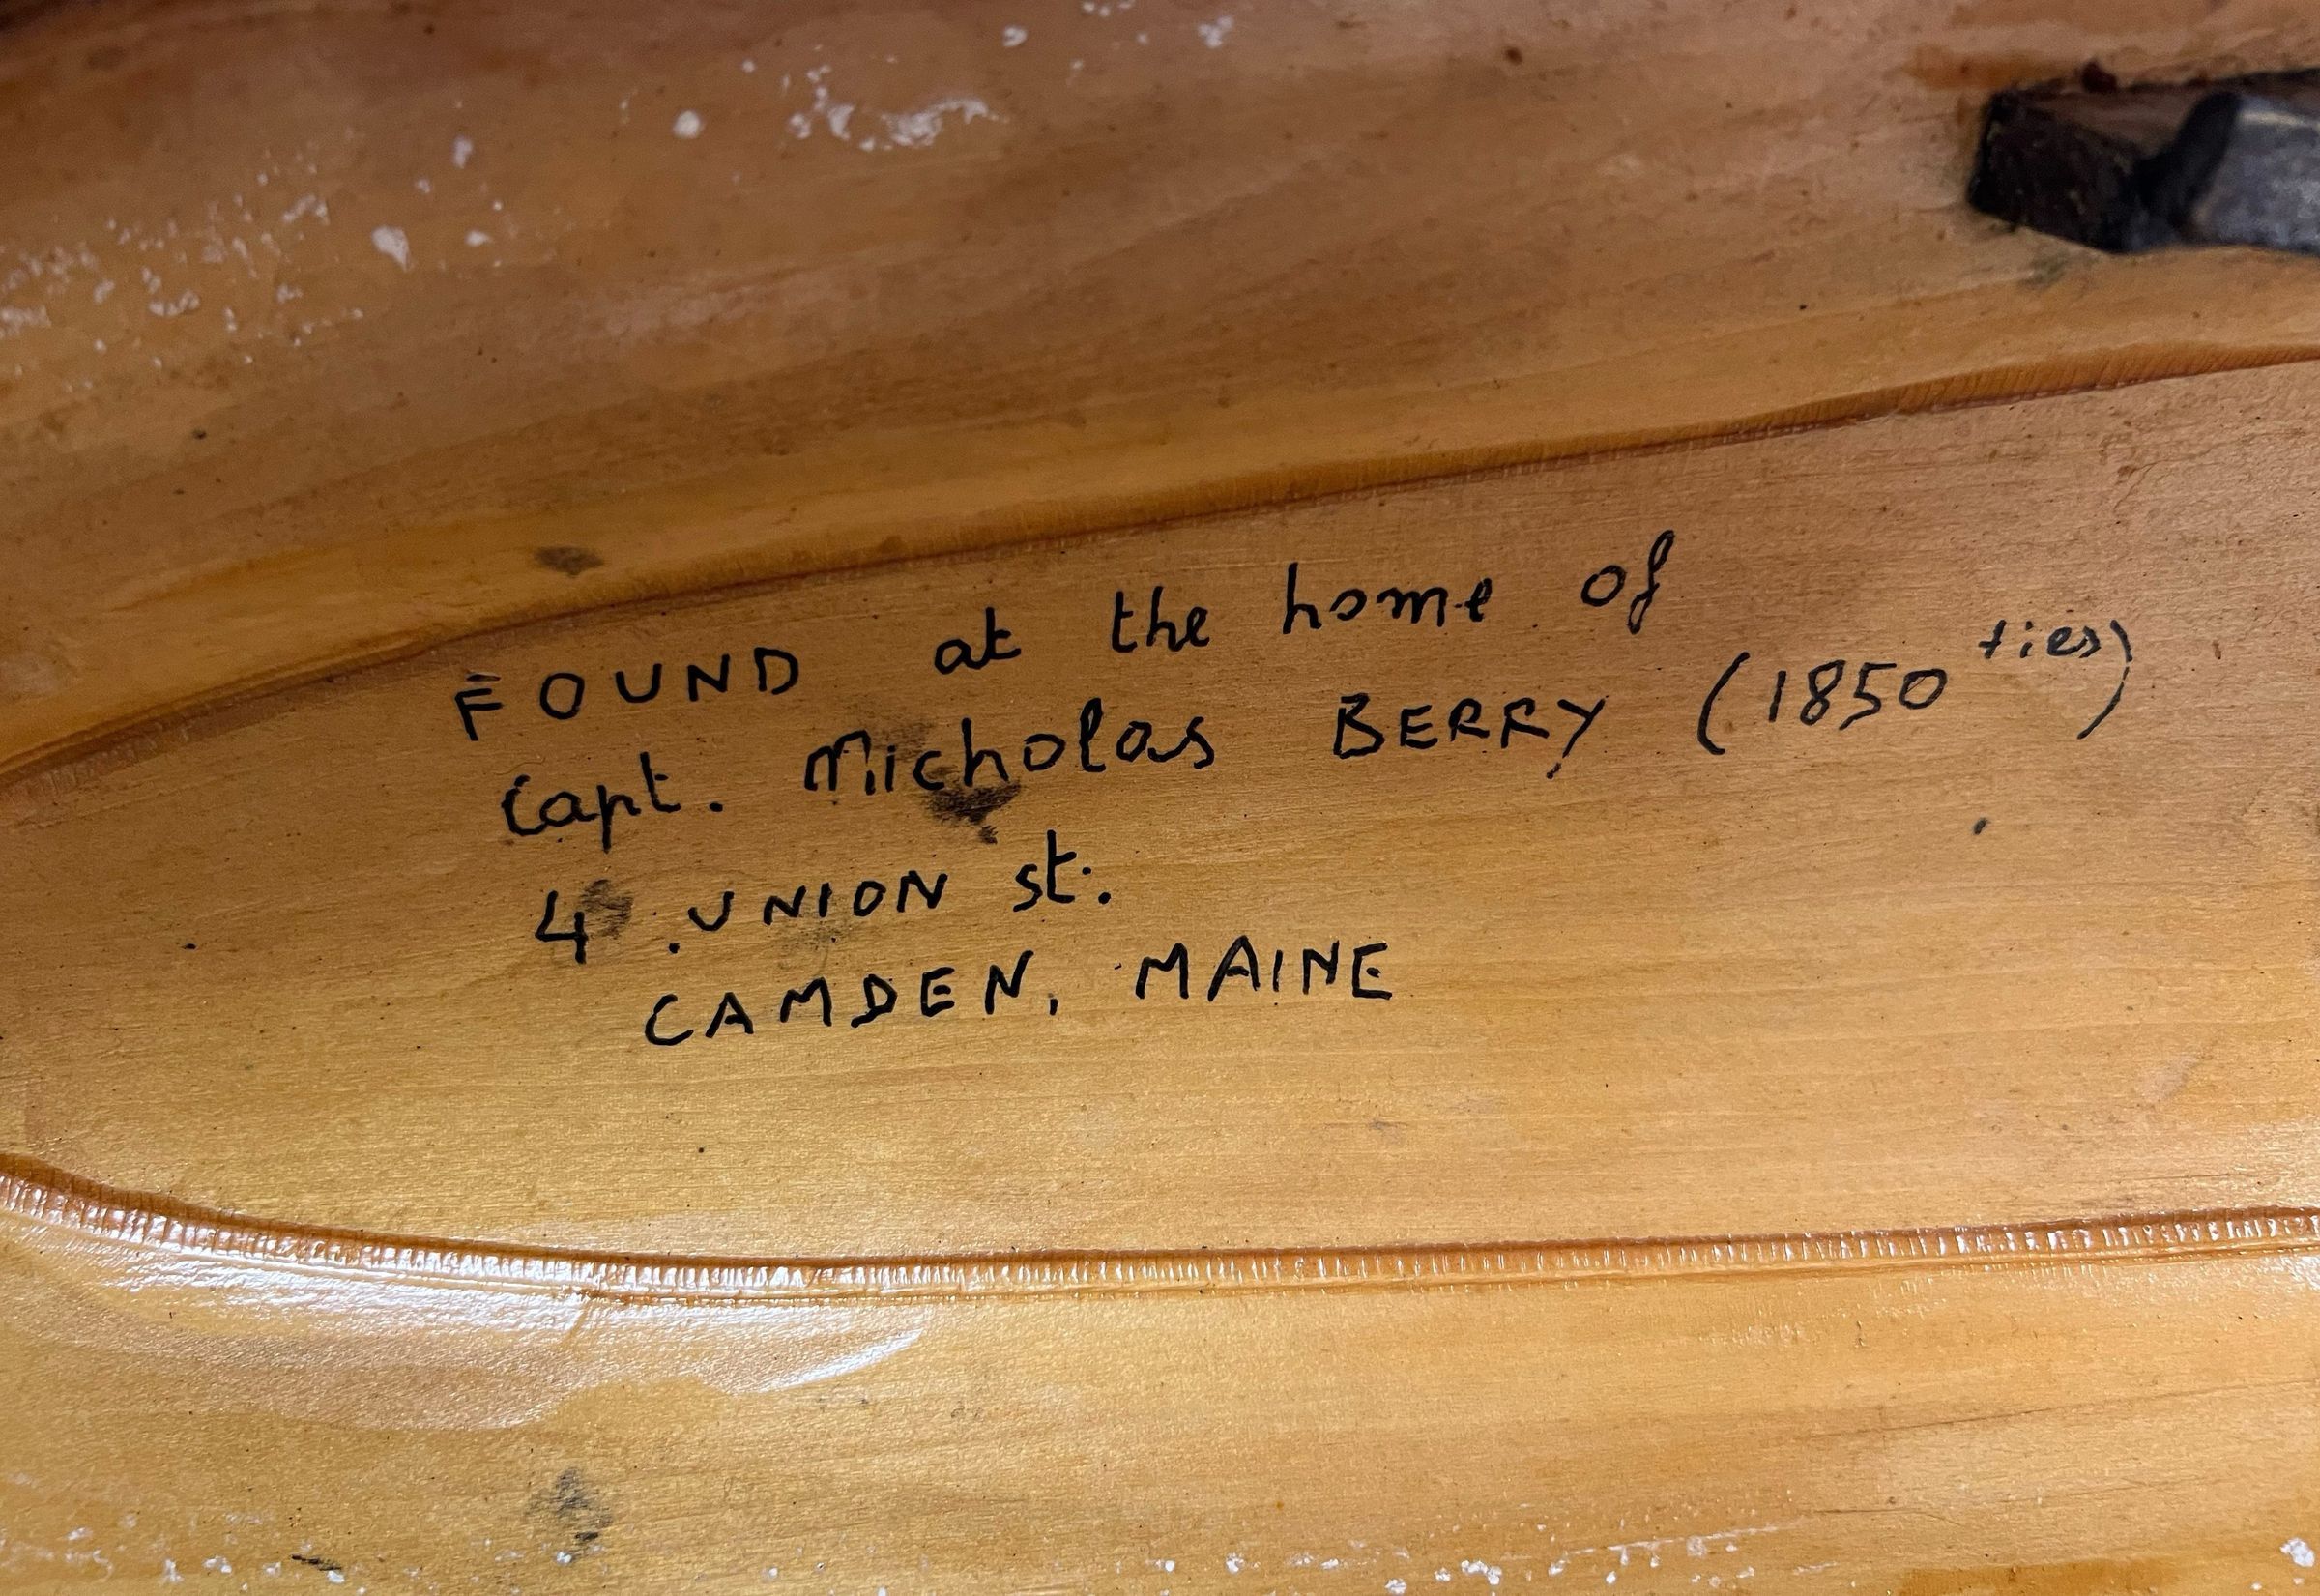 FOUND at the home of
Capt. Nicholas BERRY (1850 ties)
4 UNION st.
CAMDEN, MAINE